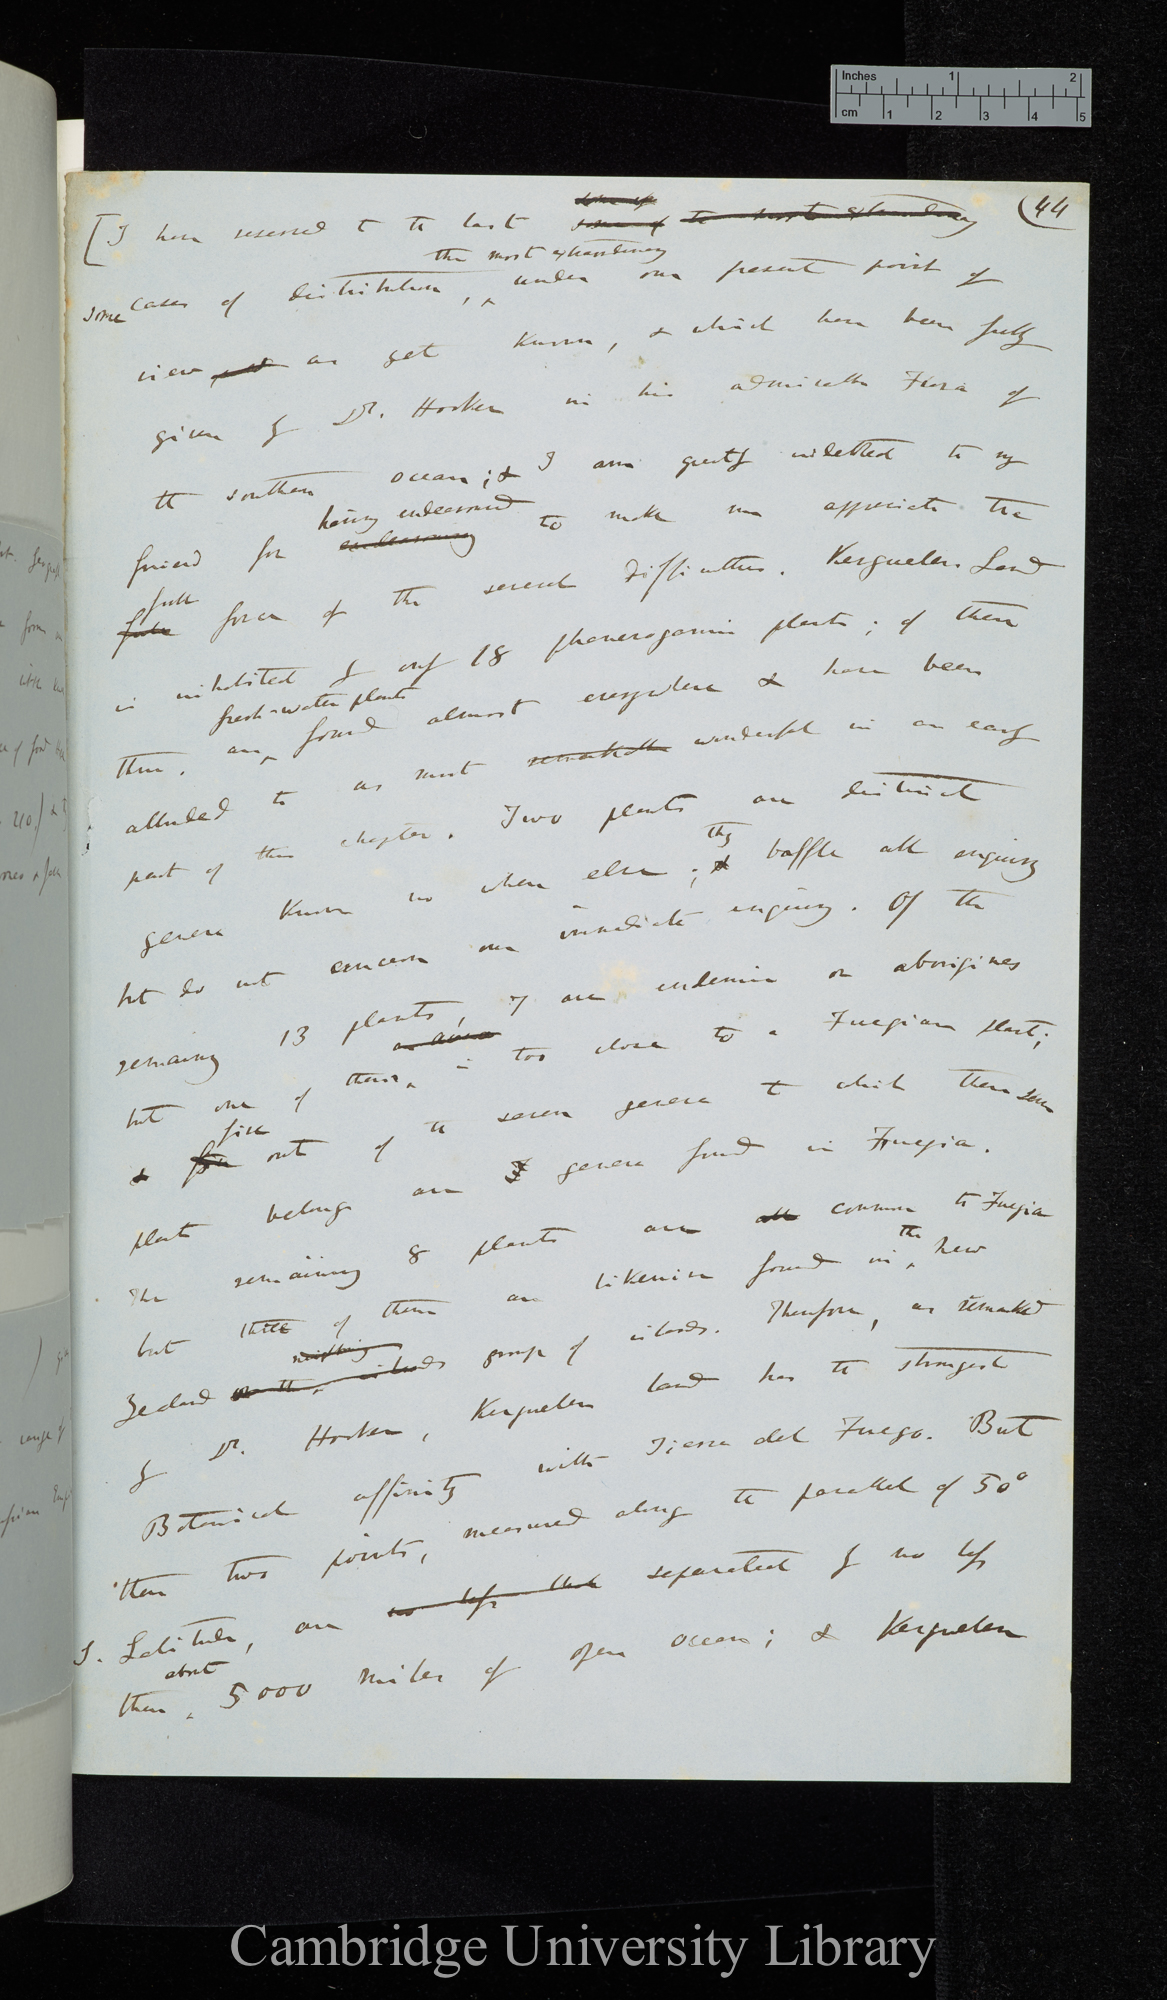 Inches 1 2
cm 1 2 3 4 5
44
some of
[I have reserved to the last some of the most extraordinary
the most extraordinary
some cases of distribution, under our present point of
view, as yet known, & which have been fully
given by Dr. Hooker in his admirable Flora of
the southern ocean; & I am greatly indebted to my
having endeavoured
friend for endeavouring to make me appreciate the
full
force of the several difficulties. Kerguelen Land
is inhabited by only 18 phanerogamic plants; of these
fresh-water plants
three, are found almost everywhere & have been
alluded to as most remarkable wonderful in an early
part of this chapter. Two plants are distinct
they
genera known no where else; & baffle all enquiry
but do not concern our immediate enquiry. Of the
remaining 13 plants, 7 are endemic or aborigines
but one of these, is too close to a Fuegian plant;
five
& out of the seven genera to which these seven
plants belong are genera found in Fuegia.
The remaining 6 plants are all common to Fuegia
the
but three of them are likewise found in New
neighbouring
Zealand or the islands group of islands. Therefore, as remarked
by Dr. Hooker, Kerguelen land has the strongest
Botanical affinity with Tierra del Fuego. But
these two points, measured along the parallel of 50°
S. Latitude, are no less than separated by no less
about
than 5000 miles of open ocean; & Kerguelen
Cambridge University Library